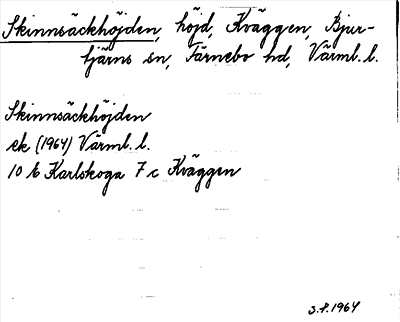 Skinnsäckhöjden, höjd, Kväggen, Bjur-
tjärns sn, Färnebo hd, Värml. l.
Skinnsäckhöjden
ek (1964) Värml. l.
10 E Karlskoga 7 c Kväggen
1964